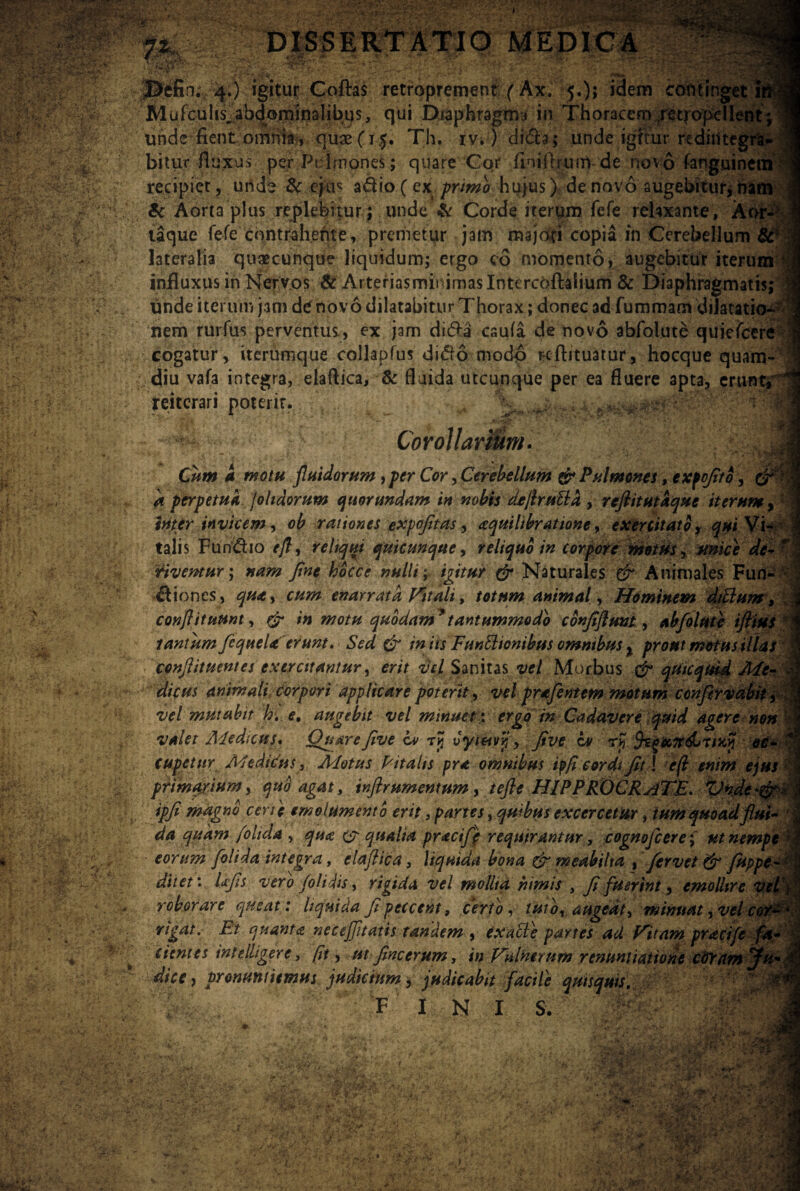 72 DISSERTATIO MEDICA
Defin. 4.) igitur Coſtas retroprement (Ax. 5.); idem continget in
Muſculis abdominalibus, qui Diaphragma in Thoracem retropellent;
unde fient omnia, quæ (15. Th. IV.) dicta; unde igitur redintegra-
bitur fluxus per Pulmones; quare Cor ſiniſtrum de novô ſanguinem
recipiet, unde & ejus actio (ex primo hujus) de novô augebitur, nam
& Aorta plus replebitur; unde & Corde iterum ſeſe relaxante, Aor-
tâque ſeſe contrahente, premetur jam majori copiâ in Cerebellum &
lateralia quæcunque liquidum; ergo eô momentô, augebitur iterum
influxus in Nervos & Arterias minimas Intercoſtalium & Diaphragmatis;
unde iterum jam de novô dilatabitur Thorax; donec ad ſummam dilatatio-
nem rurſus perventus, ex jam dictâ cauſâ de novô abſolutè quieſcere
cogatur, iterumque collapſus dictô modô reſtituatur, hocque quam-
diu vaſa integra, elaſtica, & fluida utcunque per ea fluere apta, erunt,
reiterari poterit.
Corollarium.
Cùm à motu fluidorum, per Cor, Cerebellum & Pulmones, expoſitô, &
à perpetuâ ſolidorum quorundam in nobis deſtructâ, reſtitutâque iterum,
inter invicem, ob rationes expoſitas, æquilibratione, exercitatô, qui Vi-
talis Functio eſt, reliqui quicunque, reliquô in corpore motus, unicè de-
riventur; nam ſine hôcce nulli; igitur & Naturales & Animales Fun-
ctiones, quæ, cum enarratâ Vitali, totum animal, Hominem dictum,
conſtituunt, & in motu quôdam tantummodò conſiſtunt, abſolutè iſtius
tantùm ſequelæ erunt. Sed & in iis Functionibus omnibus, prout motus illas
conſtituentes exercitantur, erit vel Sanitas vel Morbus & quicquid Me-
dicus animali corpori applicare poterit, vel præſentem motum conſervabit,
vel mutabit h. e. augebit vel minuet: ergo in Cadavere quid agere non
valet Medicus. Quare ſive ἐν τῇ ὑγιεινῇ, ſive ἐν τῇ θεραπευτικῇ oc-
cupetur Medicus, Motus Vitalis præ omnibus ipſi cordi ſit! eſt enim ejus
primarium, quô agat, inſtrumentum, teſte HIPPROCRATE. Unde &
ipſi magnô certè emolumentô erit, partes, quibus excercetur, tum quoad flui-
da quàm ſolida, quæ & qualia præciſè requirantur, cognoſcere; ut nempe
eorum ſolida integra, elaſtica, liquida bona & meabilia, ſervet & ſuppe-
ditet: læſis verò ſolidis, rigida vel mollia nimis, ſi fuerint, emollire vel
roborare queat: liquida ſi peccent, certò, tutò, augeat, minuat, vel cor-
rigat. Et quanta neceſſitatis tandem, exactè partes ad Vitam præciſè fa-
cientes intelligere, ſit, ut ſincerum, in Vulnerum renuntiatione coram Ju-
dice, pronuntiemus judicium, judicabit facilè quisquis.
F I N I S.